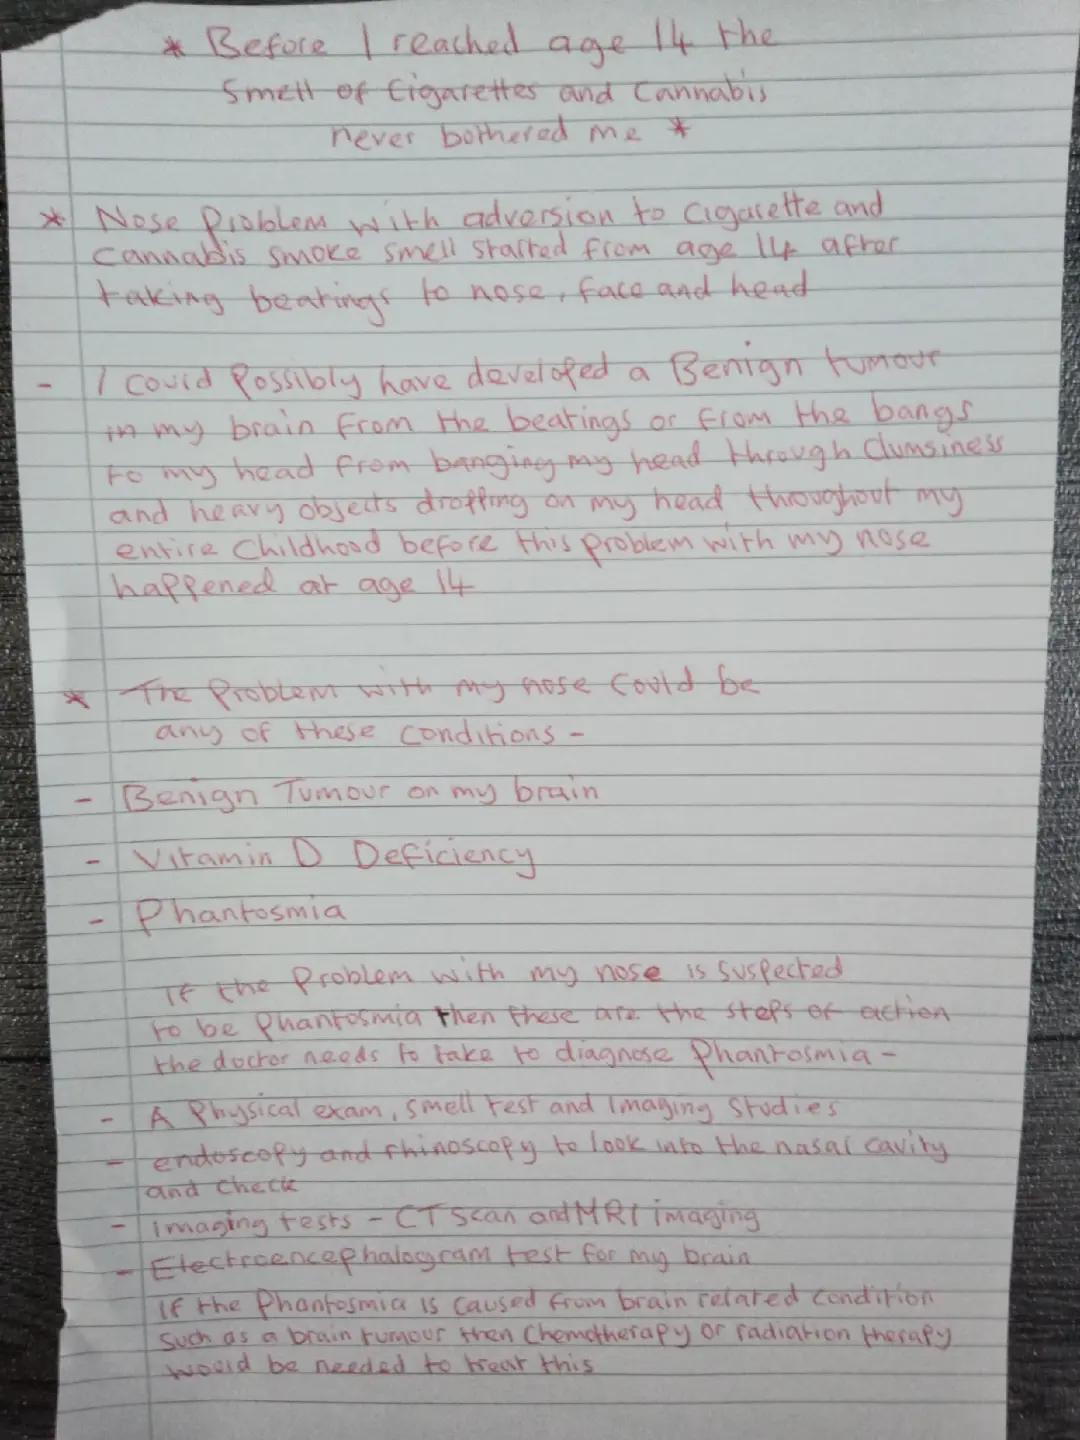 * Before I reached age 14 the
Smell of Cigarettes and Cannabis
never bothered me *
* Nose Problem with adversion to Cigarette and
Cannabis smoke smell started from age 14 after
taking beatings to nose, face and head
- I could Possibly have developed a Benign tumour
in my brain from the beatings or from the bangs
to my head from banging my head through Clumsiness
and heavy objects dropping on my head throughout my
entire Childhood before this problem with my nose
happened at age 14
* The Problem with my nose Could be
any of these Conditions -
- Benign Tumour on my brain
- Vitamin D Deficiency
- Phantosmia
If the Problem with my nose is Suspected
to be Phantosmia then these are the steps of action
the doctor needs to take to diagnose Phantosmia -
- A Physical exam, Smell test and Imaging Studies
- endoscopy and rhinoscopy to look into the nasal cavity
and Check
- Imaging tests - CT Scan and MRI imaging
- Electroencephalogram test for my brain
If the Phantosmia is Caused from brain related Condition
Such as a brain tumour then Chemotherapy or radiation therapy
would be needed to treat this